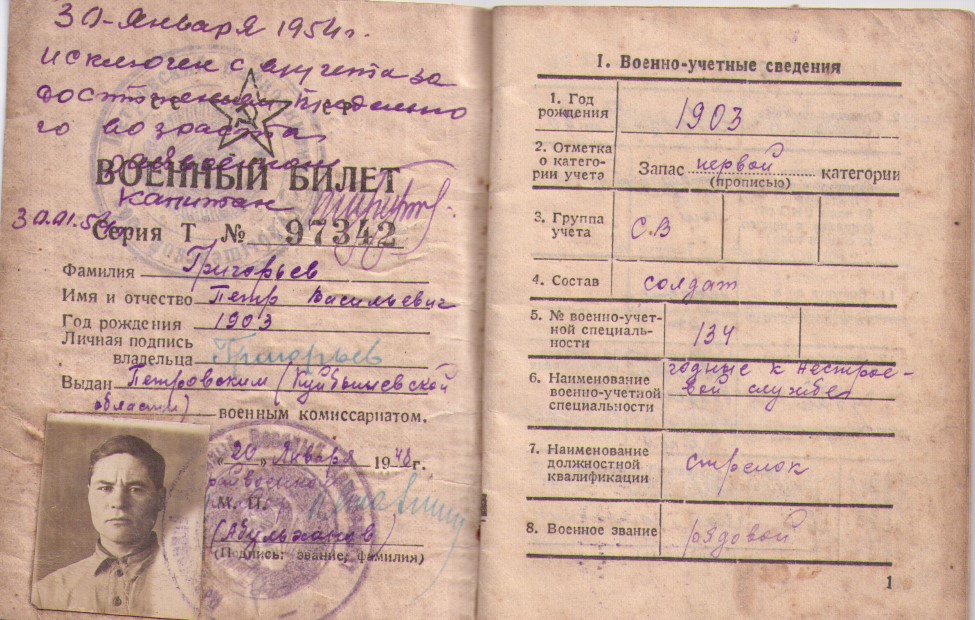 30-Января 1954 г.
Исключен с а учета за
достижением предельно
го возраста
райвоенком
ВОЕННЫЙ БИЛЕТ
капитан
30.01.54г.
Серия Т № 97342
Фамилия Григорьев
Имя и отчество Петр Васильевич
Год рождения 1903
Личная подпись
владельца Григорьев
Выдан Петровским (Куйбышевской
области) военным комиссариатом.
„20„ Января 1948 г.
райвоенком
М. П.
(Абульханов)
(Подпись: звание, фамилия)
1. Военно-учетные сведения
1. Год
рождения 1903
2. Отметка
о катего-
рии учета Запас первой категории
(прописью)
3. Группа
учета С.В
4. Состав солдат
5. № военно-учет-
ной специаль-
ности 134
6. Наименование
военно-учетной
специальности годные к нестрое-
вой службе
7. Наименование
должностной
квалификации стрелок
8. Военное звание рядовой
1